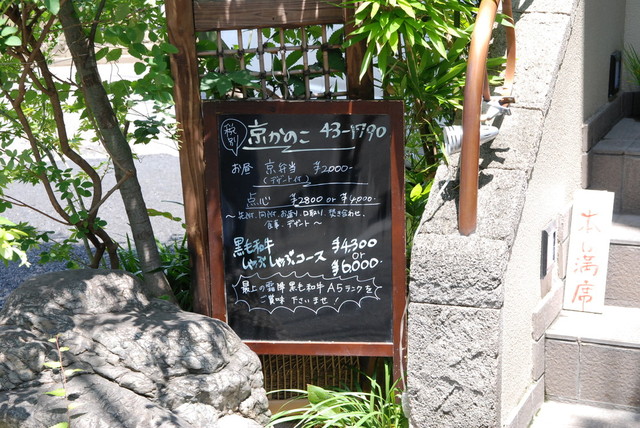 税別
京かのこ 43-1790
お昼 京弁当 ¥2000-
(デザート付)
点心 ¥2800 or ¥4,000-
〜先付、向付、お造り、口取り、焚き合わせ、
食事、デザート〜
黒毛和牛
しゃぶしゃぶコース ¥4300
or
¥6,000-
最上の霜降黒毛和牛A5ランクを
ご賞味下さいませ!
本日満席